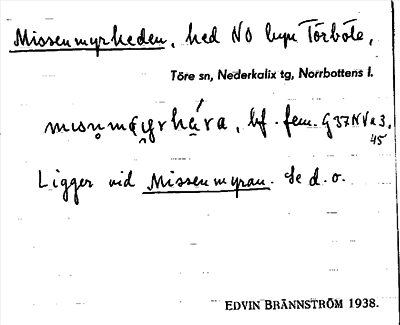 Missenmyrheden, hed NO byn Törböle,
Töre sn, Nederkalix tg, Norrbottens l.
bf. fem. G 37 N V a 3.
45
Ligger vid Missenmyran. Se d. o.
EDVIN BRÄNNSTRÖM 1938.